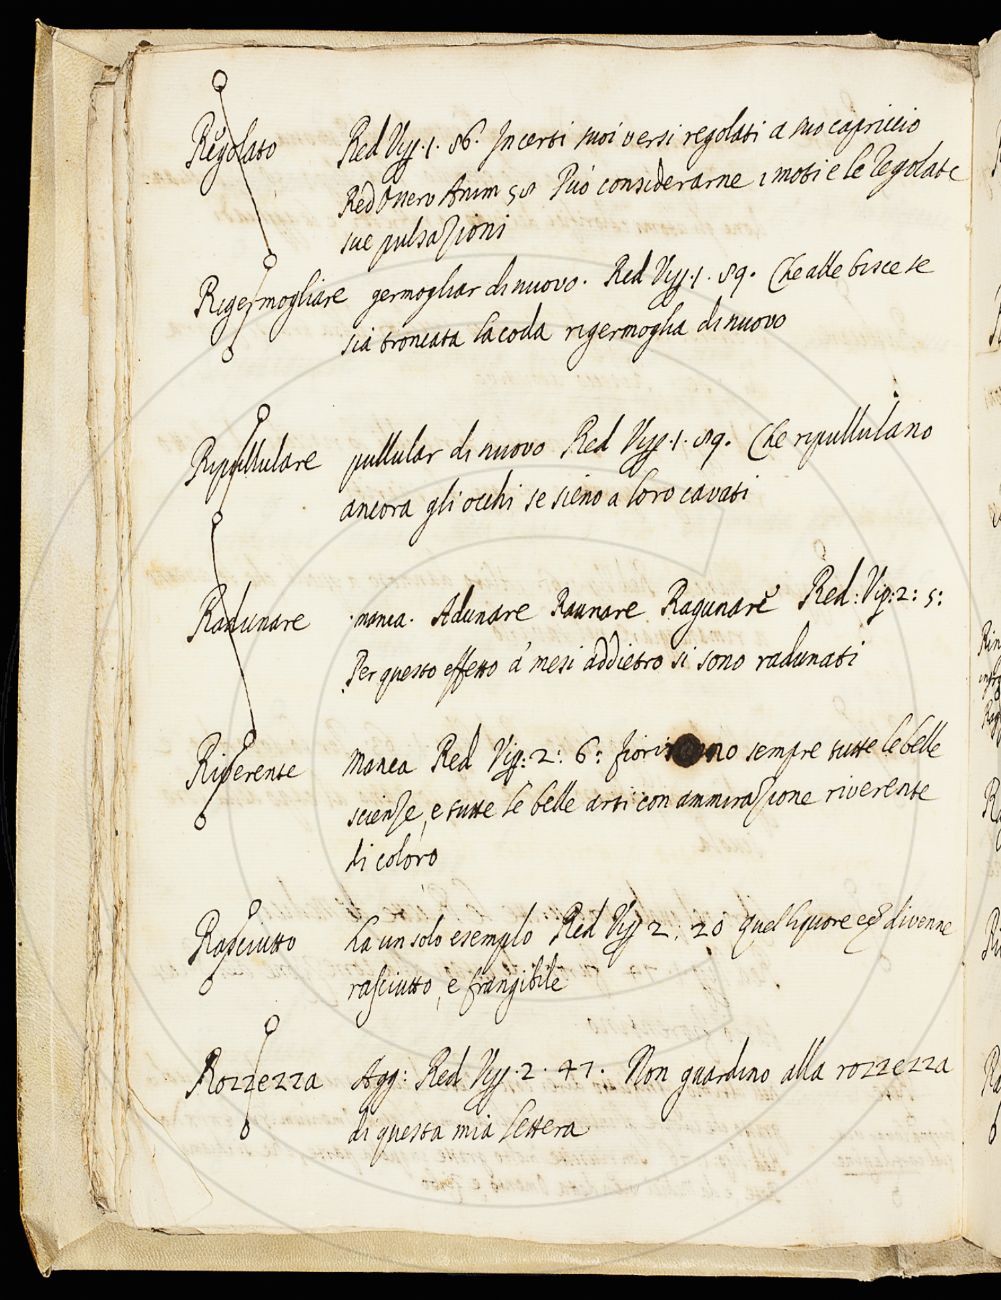 Regolato Red Vip. 1. 86. In certi suoi versi regolati a suo capriccio
Red Osserv Anim 58 Può considerarne i moti e le regolate
sue pulsazioni
Rigermogliare germogliar di nuovo. Red Vip. 1. 89. Che alle bisce se
sia troncata la coda rigermoglia di nuovo
Ripullulare pullular di nuovo Red Vip. 1. 89. Che ripullulano
ancora gli occhi se sieno a loro cavati
Radunare manca. Adunare Raunare Ragunare Red: Vip: 2: 5:
Per questo effetto a' mesi addietro si sono radunati
Riverente Manca Red Vip: 2: 6: sempre tutte le belle
scienze, e tutte le belle arti con ammirazione riverente
di coloro
Rasciutto ha un solo esemplo Red Vip 2. 20 quel liquore divenne
rasciutto, e frangibile
Rozzezza Agg: Red Vip. 2. 47. Non guardino alla rozzezza
di questa mia lettera